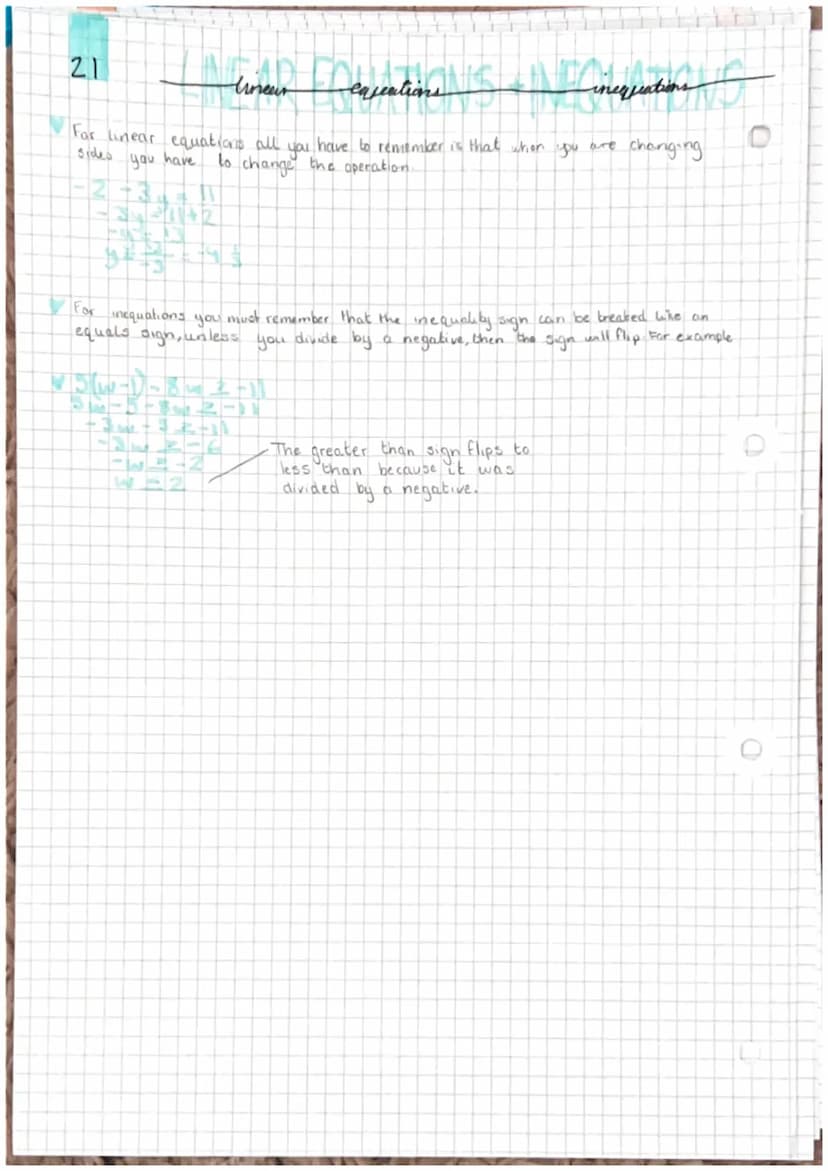 21
LINEAR EQUATIONS + INEQUATIONS
linear equations inequations
For linear equations all you have to remember is that when you are changing
sides you have to change the operation.
-2 - 3y = 11
-3y = 11+2
For inequations you must remember that the inequality sign can be treated like an
equals sign, unless you divide by a negative, then the sign will flip. For example
5(w-1)-8w ≥ -11
5w-5-8w ≥ -11
-3w ≥ -6
The greater than sign flips to
less than because it was
divided by a negative.